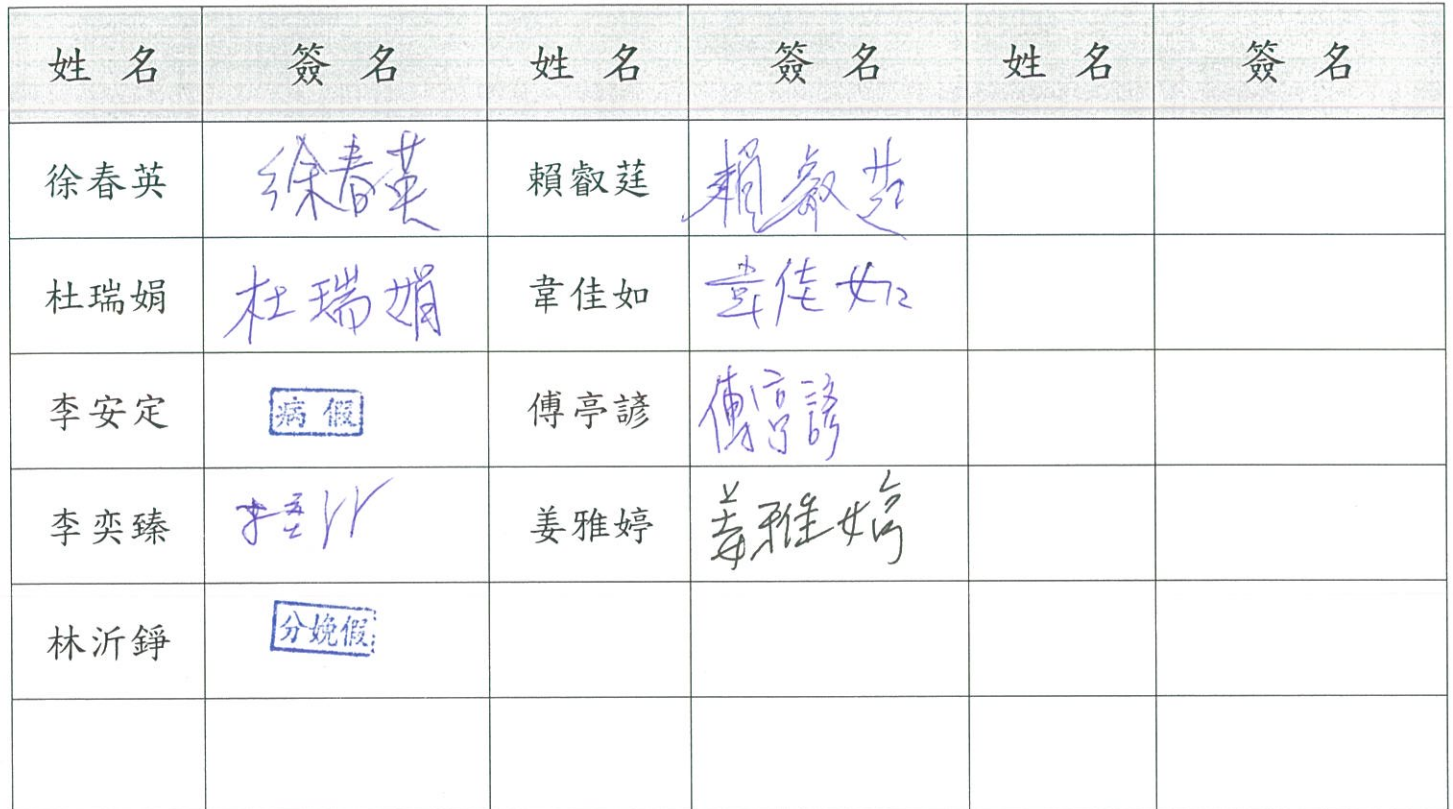 姓名 簽名 姓名 簽名 姓名 簽名
徐春英 徐春英 賴叡莛 賴叡莛
杜瑞娟 杜瑞娟 韋佳如 韋佳如
李安定 病假 傅亭諺 傅亭諺
李奕臻 姜雅婷 姜雅婷
林沂錚 分娩假